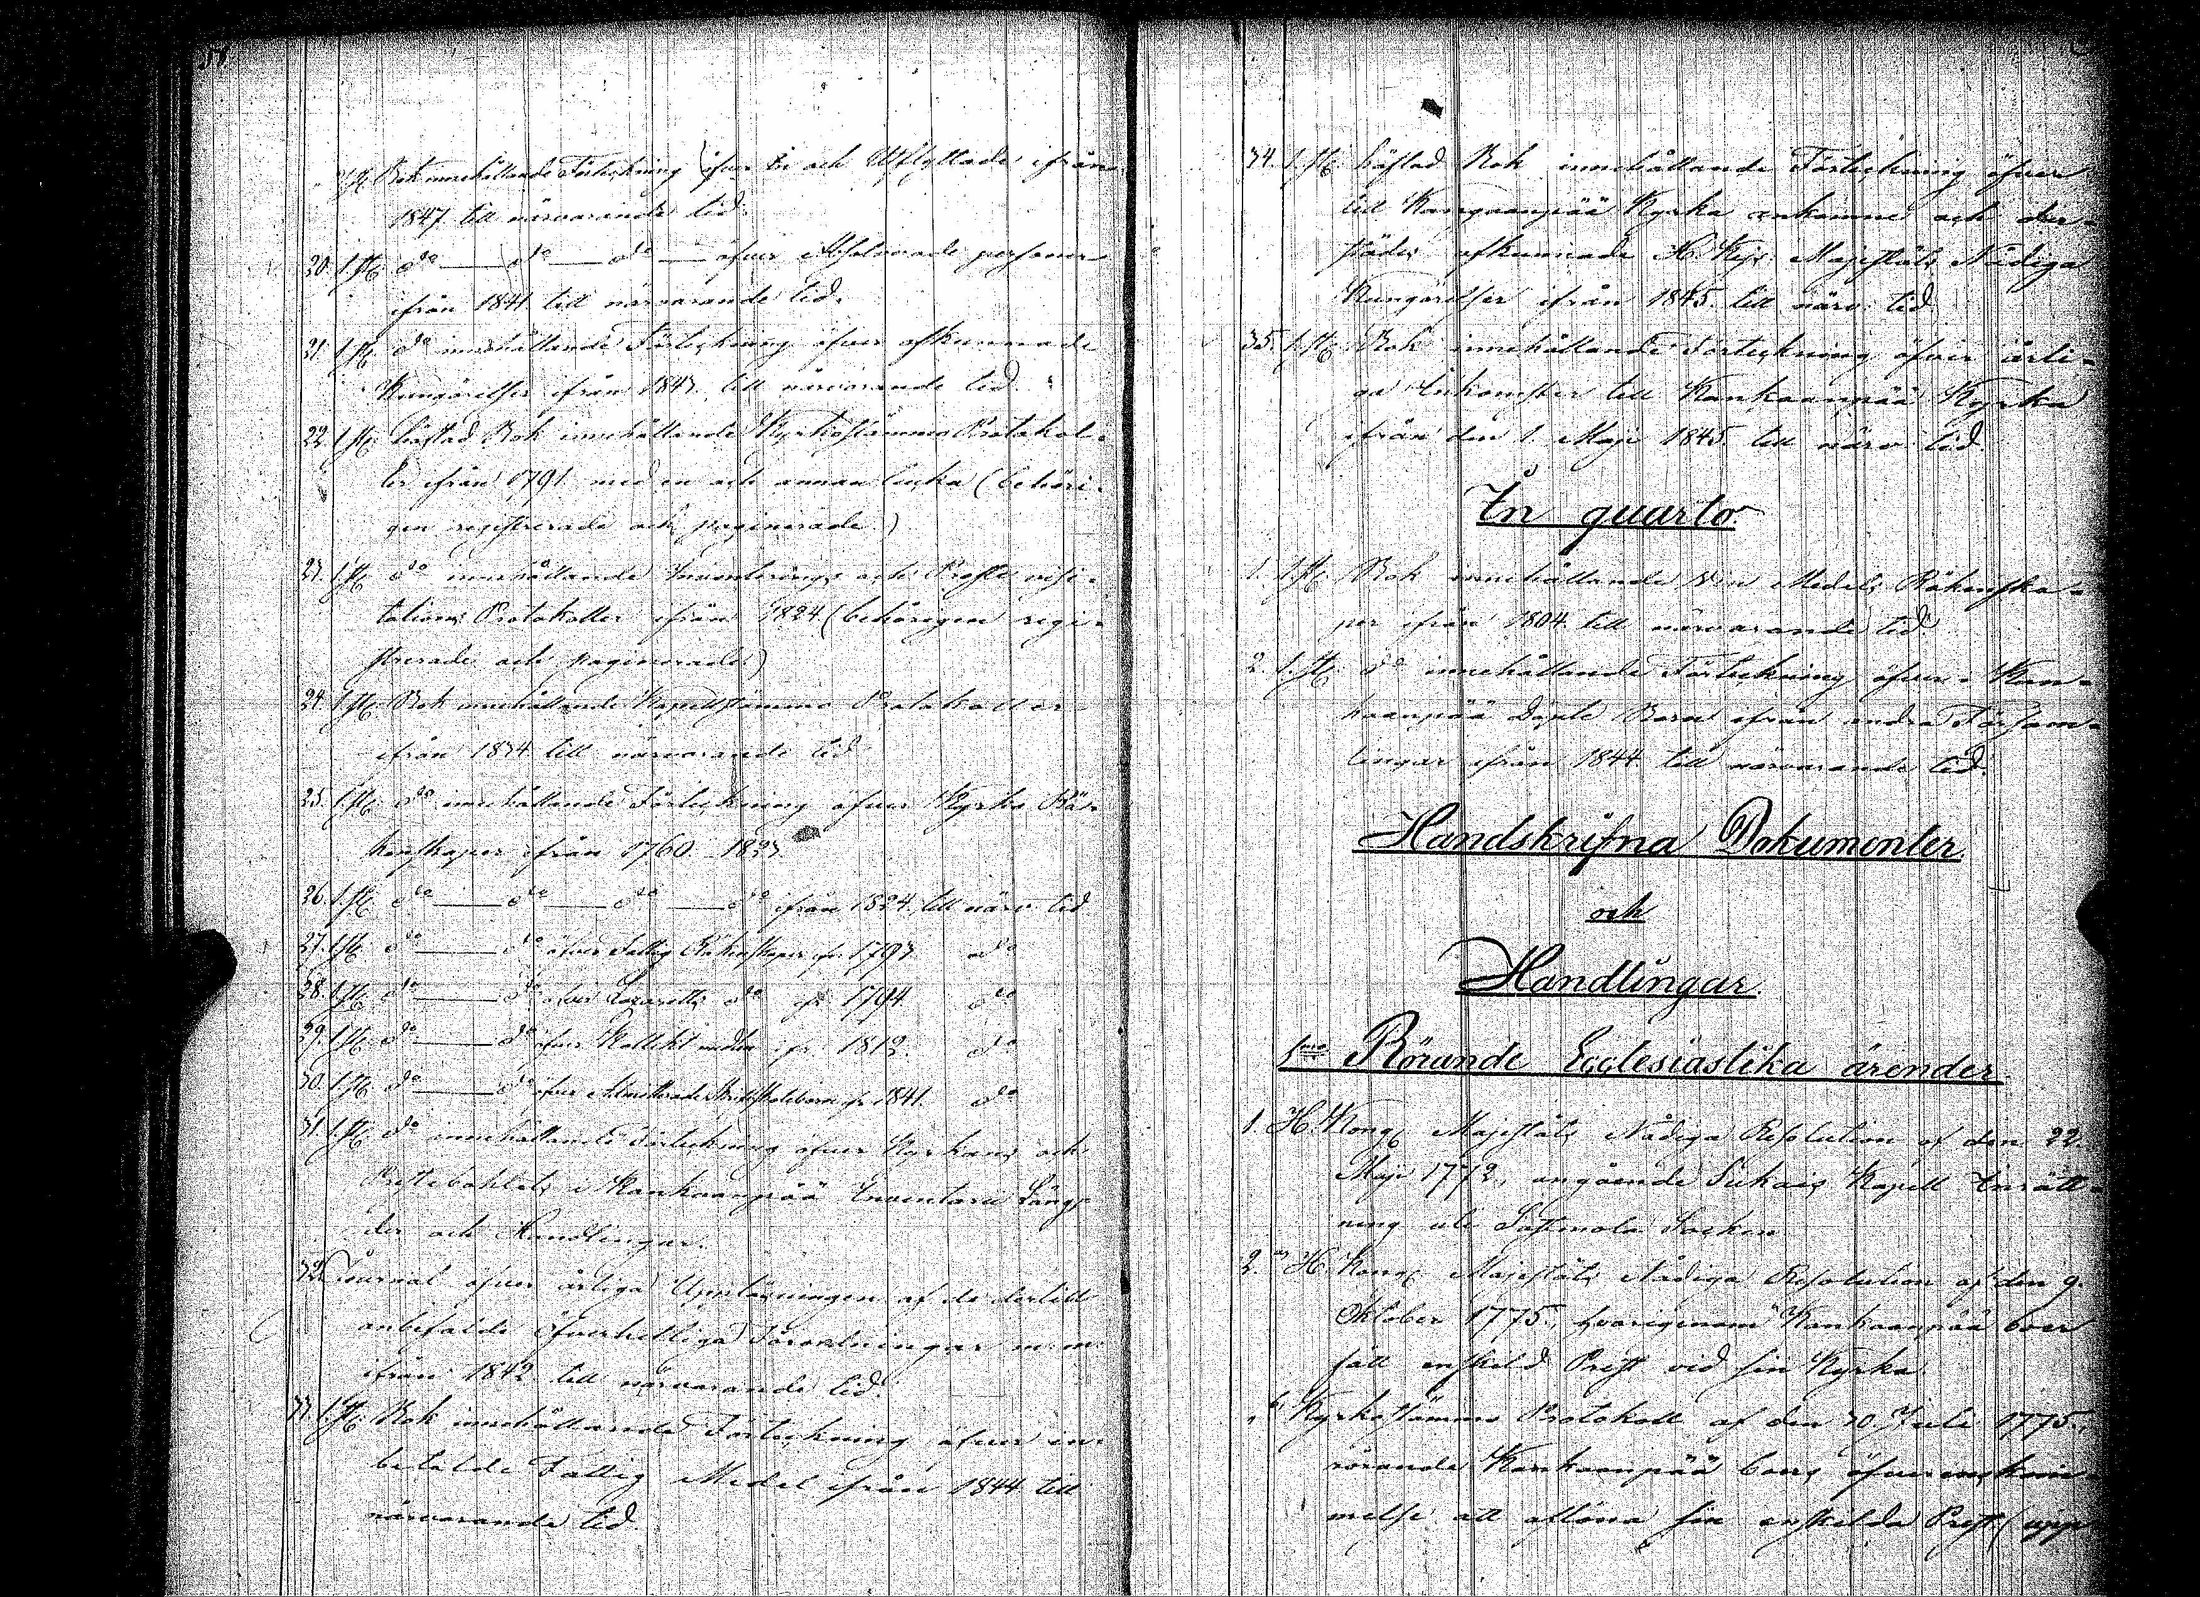 1 st. Bok innehållande Förteckning öfver In och Utflyttade ifrån
1847 till närvarande tid.
20. 1 st. do do do öfver Absolverade personer
ifrån 1841 till närvarande tid.
21. 1 st. do innehållande Förteckning öfver afkunnade
Kungörelser ifrån 1843 till närvarande tid.
22. 1 st. häftad Bok innehållande Kyrkostämmo Protokol-
ler ifrån 1791 med en och annan lucka (behöri-
gen registrerade och paginerade.)
23. 1 st. do innehållande Inventerings och Proste visi-
tations Protokoller ifrån 1824 (behörigen regi-
strerade och paginerade)
24. 1 st. Bok innehållande Kapellstämmo Protokoller
ifrån 1834 till närvarande tid
25. 1 st. do innehållande Förteckning öfver Kyrko Rä-
kenskaper ifrån 1760 1823.
26. 1 st. do do do do ifrån 1824 till närv. tid
27. 1 st. do do öfver Fattig Räkenskaper ifr. 1793 do
28. 1 st. do do öfver Lazaretts do ifr. 1794 do
29. 1 st. do do öfver Kollekt medlen ifr. 1812. do
30. 1 st. do do öfver Admitterade Skriftskolebarn ifr. 1841. do
31. 1 st. do innehållande Förteckning öfver Kyrkans och
Prestebohlets i Kankaanpää Inventarii
der och Handlingar.
32. Journal öfver årliga Uppläsningen af de dertill
anbefalde öfverhetliga Förordningar m: m:
ifrån 1842 till närvarande tid.
33. 1 st. Bok innehållande Förteckning öfver in-
betalde Fattig Medel ifrån 1844 till
närvarande tid.
34. 1 st. häftad Bok innehållande Förteckning öfver
till Kangaanpää Kyrka ankomne och der-
städes afkunnade H. Kejs. Majestäts Nådiga
Kungörelser ifrån 1845 till närv. tid
35. 1 st. Bok innehållande Förteckning öfver årli-
ga Inkomster till Kankaanpää Kyrka
ifrån den 1. Maji 1845 till närv. tid.
In quarto
1. 1 st. Bok innehållande Vin Medels Räkenska-
per ifrån 1804 till närvarande tid
2. 1 st. do innehållande Förteckning öfver i Kan-
kaanpää döpte Barn ifrån andra Försam-
lingar ifrån 1844 till närvarande tid.
Handskrifna Dokumenter
och
Handlingar.
1mo Rörande Ecclesiastika ärender
1. H. Kongl. Majestäts Nådiga Resolution af den 22.
Maji 1772, angående Sukais Kapell Inrätt-
ning uti Sastmola Socken
2. a, H. Kongl. Majestäts Nådiga Resolution af den 9.
Oktober 1775, hvarigenom Kankaanpää boer
fått enskild Prest vid sin Kyrka.
" b, Kyrkostämmo Protokoll af den 30 Juli 1775,
rörande Kankaanpää boers öfverenskom-
melse att aflöna sin enskilda Prest (upp